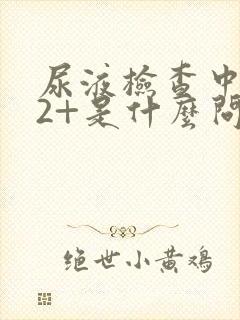 尿液檢查中
2+是什麼問
绝世小黄鸡